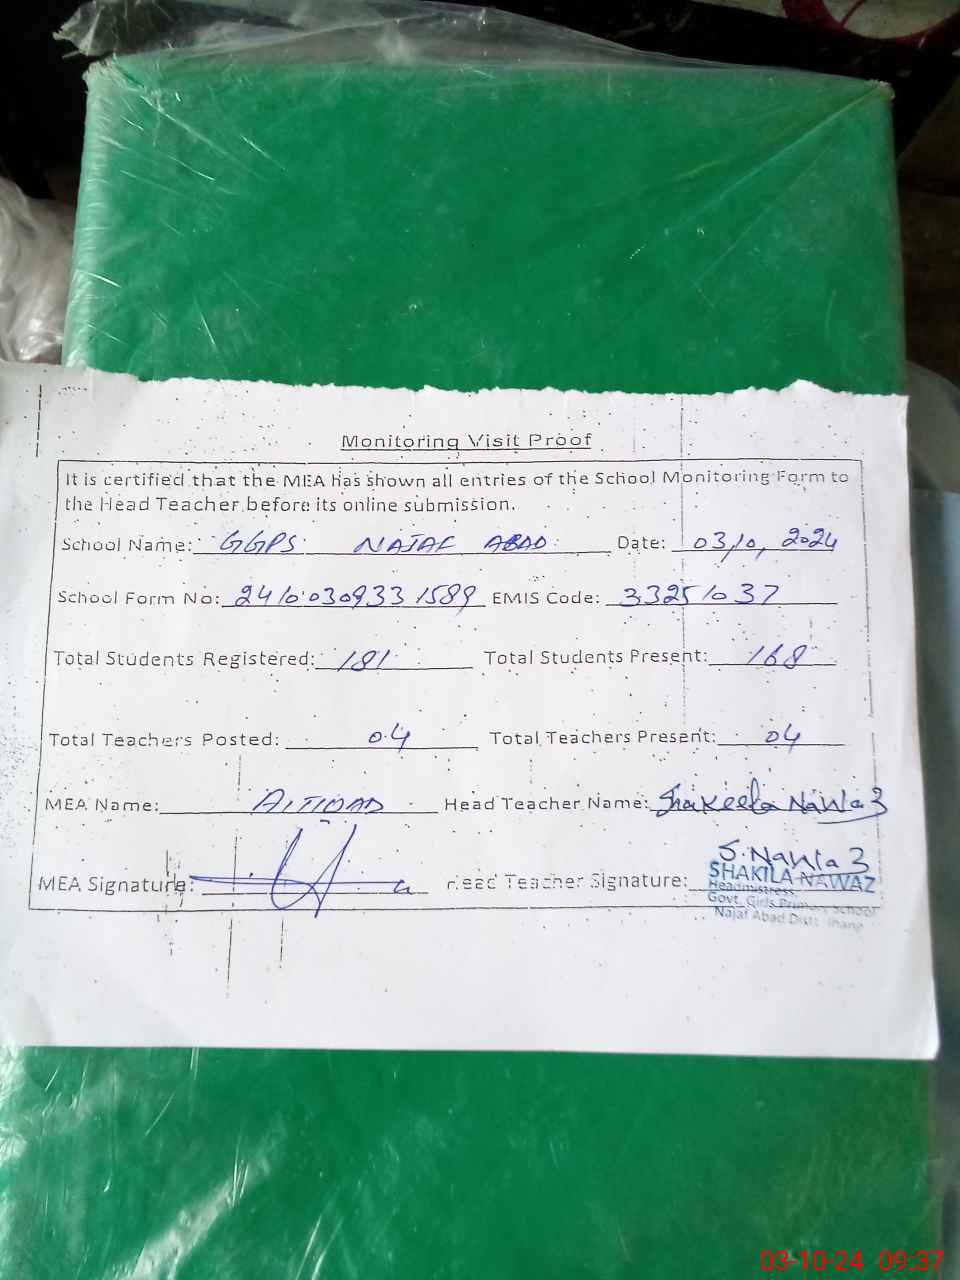 Monitoring Visit Proof
It is certified that the MEA has shown all entries of the School Monitoring Form to
the Head Teacher before its online submission.
School Name: GGPS NAJAF ABAD Date: 03,10,2024
School Form No: 24100309331589 EMIS Code: 33251037
Total Students Registered: 181 Total Students Present: 168
Total Teachers Posted: 04 Total Teachers Present: 04
MEA Name: Head Teacher Name: Shakeela Nawaz
S. Nawaz
MEA Signature: Head Teacher Signature: SHAKILA NAWAZ
Headmistress
Govt. Girls Primary School
Najaf Abad Distt. Jhang
03-10-24 09:37